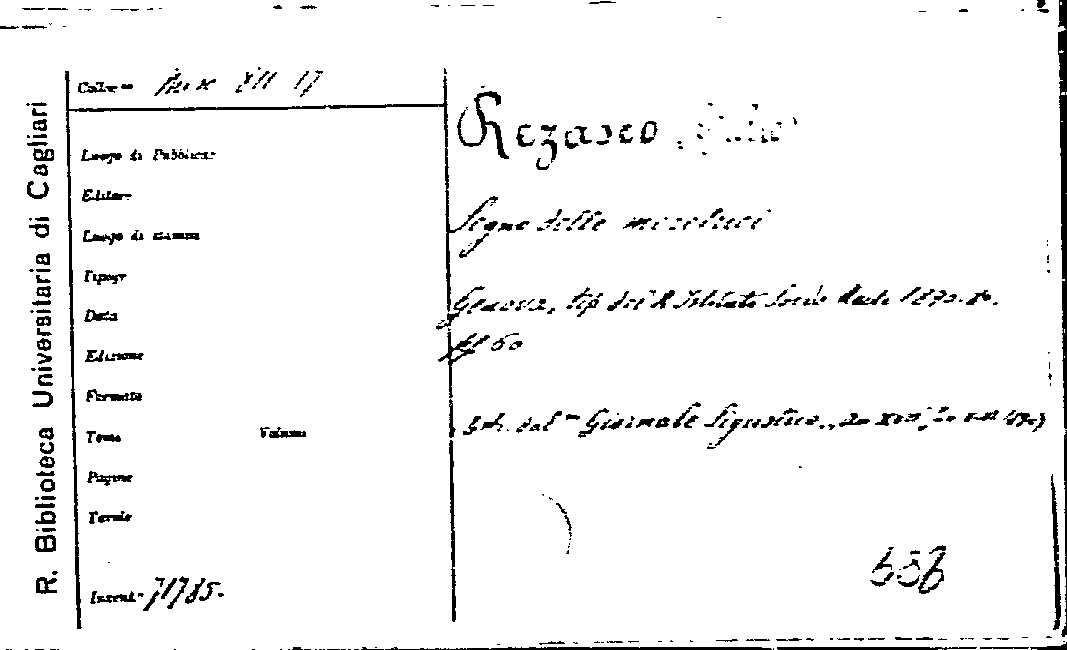 R. Biblioteca Universitaria di Cagliari
XII 17
Luogo di Pubblicaz
Editore
Luogo di stampa
Tipogr
Data
Edizione
Formato
Tomo Volume
Pagine
Tavole
Invent. 71785.
Rezasco, Giulio
Segno delle meretrici
Genova, tip del R Istituto Sordo Muti 1890. 8º.
pp 60
Estr. dal "Giornale Ligustico,, an XVII,